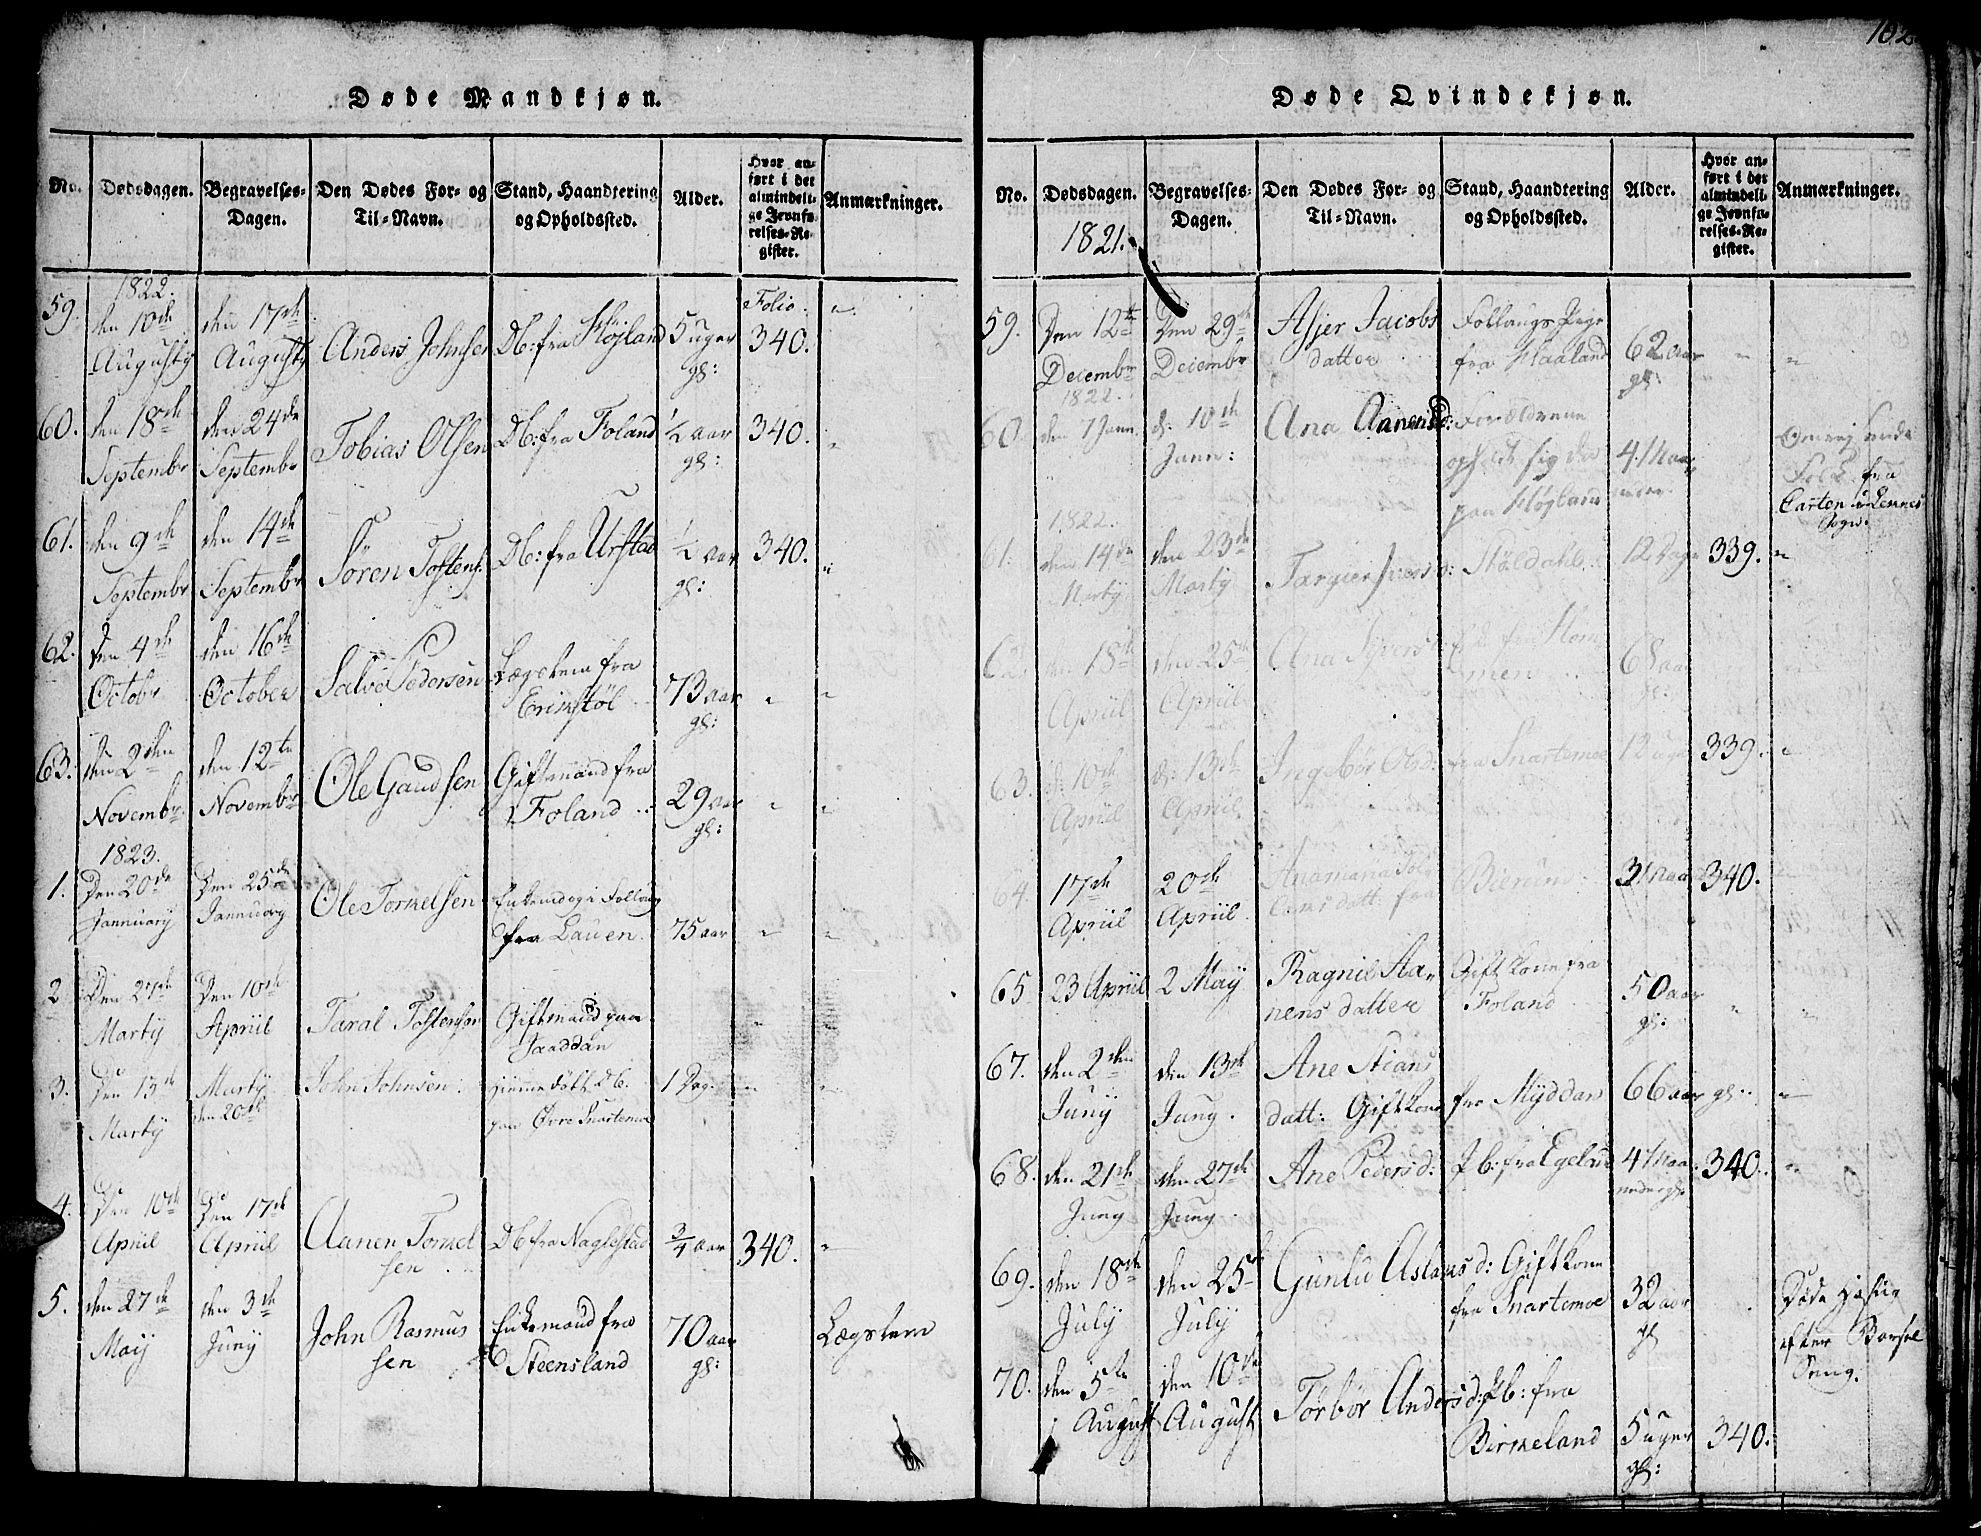 102
Døde Mandkjøn.
No. Dødsdagen. Begravelses-Dagen. Den Dødes For- og Til-Navn. Stand, Haandtering og Opholdssted. Alder. Hvor anført i det almindelige Jevnførelses-Register. Anmærkninger.
1822.
59. den 10de Augusty den 17de Augusty Anders Johnsen Db: fra Høyland 5 uger gl: Folio. 340. "
60. den 18de Septembr den 24de Septembr Tobias Olsen Db: fra Foland ½ aar gl: 340. "
61. den 9de Septembr den 14de Septembr Sören Tostens: Db: fra Urstad ½ aar gl: 340. "
62. den 4de Octobr den 16de October Salve Pedersen Lægslem fra Erikstöl 73 aar gl: " "
63. den 2den Novembr den 12te Novembr Ole Gaudsen Giftmand fra Foland 29 aar gl: " "
1823.
1. Den 20de Jannuary Den 25de Jannuary Ole Tormelsen fra Lauen. 75 aar " "
2 Den 27de Martÿ Den 10de Apriil Taral Tostensen Giftmand paa Jaaddan " "
3. Den 13de Martÿ Martÿ den 20de John Johnsen: hjemme døbt Db. paa Øvre Snartemoe 1 Dag. " "
4. Den 10de Apriil Den 17de Apriil Aanen Tormelsen Db fra Naglestad ¾ aar 340. "
5. den 27de Maÿ den 3de Junÿ John Rasmussen Enkemand fra Steensland 70 aar gl: Lægslem
Døde Qvindekjøn.
No. Dødsdagen. Begravelses-Dagen. Den Dødes For- og Til-Navn. Stand, Haandtering og Opholdssted. Alder. Hvor anført i det almindelige Jevnførelses-Register. Anmærkninger.
1821.
59. Den 12te Decembr Den 29de Decembr Asjer Jacobs datter Follaugs Pige fra Haaland 62 aar gl: " "
1822.
60. den 7 Jann. d: 10de Jann: Ana Aanensd: Forældrene opholdt sig da paa Høyland 4 Maaneder Omrejsende Folk fra Carten i Lennes Sogn.
1822.
61. den 14de Martÿ den 23de Martÿ Targier Iversd: Ståldahl 12 Dage 339. "
62. den 18de Apriil den 25de Apriil Ana Syversd: fra Hommen 68 aar gl: "
63. d: 10de Apriil d: 13de Apriil Ingebör Olsd: fra Snartemoe 12 uger 339. "
64. 17de Apriil 20de Apriil Anamaria datt: fra Bierum 3 Maa 340.
65 23 Apriil 2 Maÿ Ragnil Aanens datter Gift kone fra Foland 50 aar gl: " "
67. den 2den Junÿ den 13de Juny. Ane Stians datt: Gift kone fra Mÿddan 66 aar gl: "
68. den 21de Juny den 27de Juny Ane Pedersd: Pb: fra Egeland 4 Maaneder gl: 340. "
69. den 18de Julÿ den 25de Julÿ Gunlu Aslaksd: Gift kone fra Snartemoe 32 aar gl . Døde Hastig efter Barsel Seng.
70. den 5te August den 10de August Törbör Andersd: Pb: fra Birkeland 5 uger gl: 340.